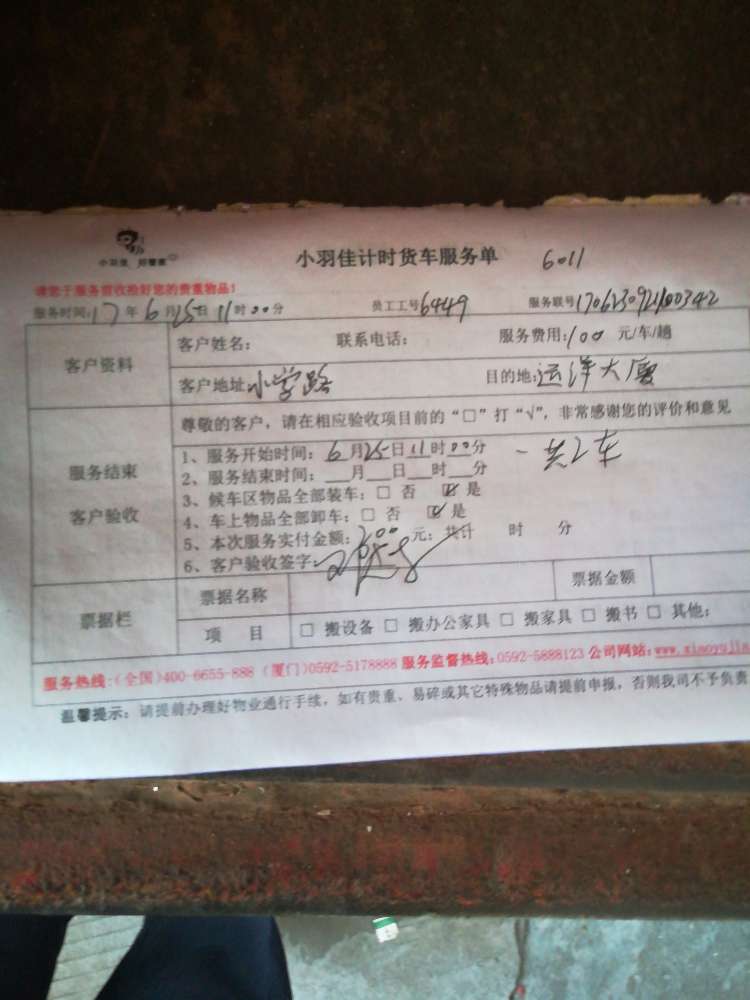 小羽佳 好管家
小羽佳计时货车服务单 6011
请您于服务前收捡好您的贵重物品!
服务时间:17年6月25日11时00分 员工工号6449 服务联号1706230921100342
客户资料
客户姓名: 联系电话: 服务费用:100 元/车/趟
客户地址 小学路 目的地:远洋大厦
服务结束
客户验收
尊敬的客户,请在相应验收项目前的“□”打“√”,非常感谢您的评价和意见
1、服务开始时间:6月25日11时00分 一共2车
2、服务结束时间:___月___日___时___分
3、候车区物品全部装车:□ 否 ☑ 是
4、车上物品全部卸车:□ 否 ☑ 是
5、本次服务实付金额:200元;共计 时 分
6、客户验收签字:
票据栏
票据名称 票据金额
项 目 □ 搬设备 □ 搬办公家具 □ 搬家具 □ 搬书 □ 其他:
服务热线:(全国)400-6655-888 (厦门)0592-5178888 服务监督热线:0592-5888123 公司网站:www.xiaoyujia
温馨提示:请提前办理好物业通行手续,如有贵重、易碎或其它特殊物品请提前申报,否则我司不予负责